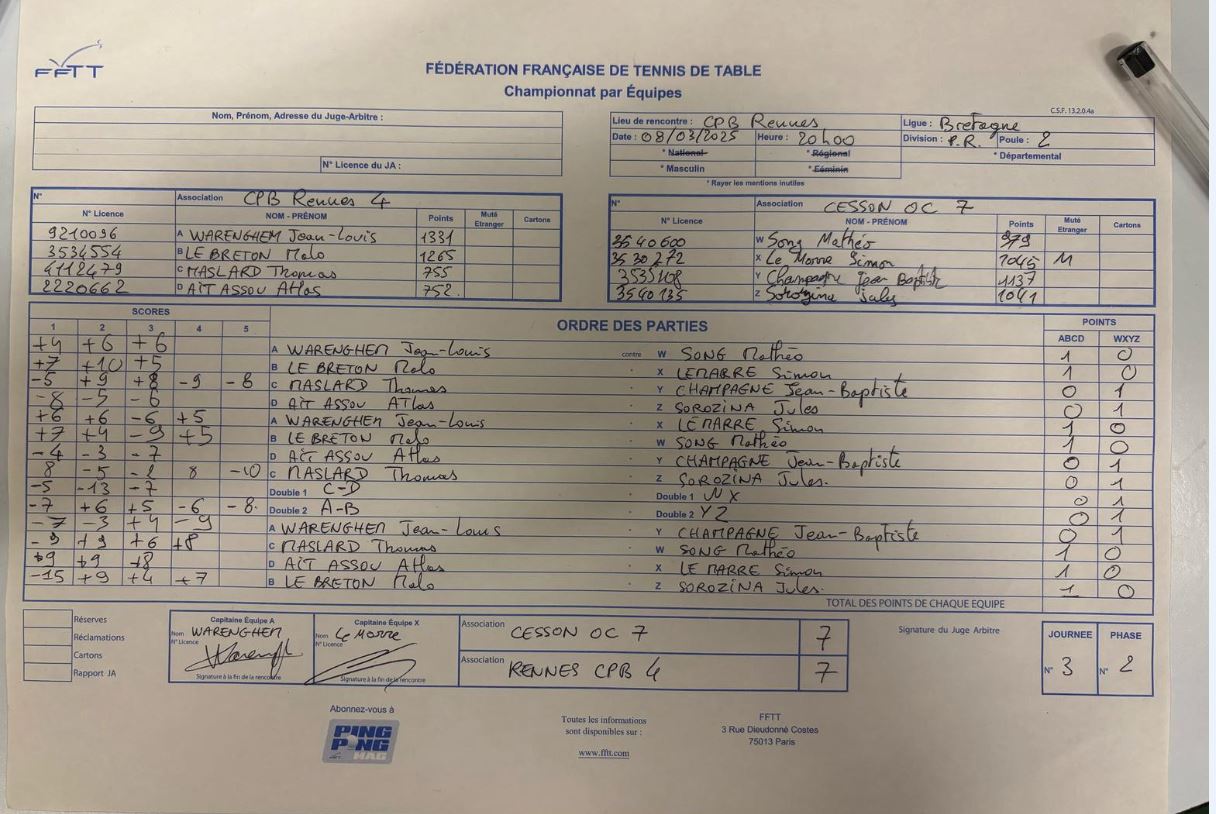 FFTT
FÉDÉRATION FRANÇAISE DE TENNIS DE TABLE
Championnat par Équipes
C.S.F. 13.2.0.4a
Nom, Prénom, Adresse du Juge-Arbitre :
N° Licence du JA :
Lieu de rencontre : CPB Rennes Ligue : Bretagne
Date : 08/03/2025 Heure : 20h00 Division : P.R. Poule : 2
* National * Régional * Départemental
* Masculin * Féminin
* Rayer les mentions inutiles
N° Association CPB Rennes 4
N° Licence NOM - PRÉNOM Points Muté Etranger Cartons
9210096 A WARENGHEM Jean-Louis 1331
3534554 B LE BRETON Malo 1265
4112479 C MASLARD Thomas 755
2220662 D AÏT ASSOU Atlas 752.
N° Association CESSON OC 7
N° Licence NOM - PRÉNOM Points Muté Etranger Cartons
3540600 W Song Mathéo 979
3530272 X Le Marre Simon 1045 M
3535108 Y Champagne Jean Baptiste 1137
3540135 Z Sorozina Jules 1041
SCORES ORDRE DES PARTIES POINTS
1 2 3 4 5 ABCD WXYZ
+4 +6 +6 A WARENGHEM Jean-Louis contre W SONG Mathéo 1 0
+7 +10 +5 B LE BRETON Malo - X LEMARRE Simon 1 0
-5 +9 +8 -9 -6 C MASLARD Thomas - Y CHAMPAGNE Jean-Baptiste 0 1
-8 -5 -6 D AÏT ASSOU ATlas - Z SOROZINA Jules 0 1
+6 +6 -6 +5 A WARENGHEM Jean-Louis - X LEMARRE Simon 1 0
+7 +4 -9 +5 B LE BRETON Malo - W SONG Mathéo 1 0
-4 -3 -7 D AÏT ASSOU Atlas - Y CHAMPAGNE Jean-Baptiste 0 1
8 -5 -2 8 -10 C MASLARD Thomas - Z SOROZINA Jules. 0 1
-5 -13 -7 Double 1 C-D - Double 1 WX 0 1
-7 +6 +5 -6 -8. Double 2 A-B - Double 2 YZ 0 1
-7 -3 +4 -9 A WARENGHEM Jean-Louis - Y CHAMPAGNE Jean-Baptiste 0 1
-9 +9 +6 +8 C MASLARD Thomas - W SONG Mathéo 1 0
+9 +9 +8 D AÏT ASSOU Atlas - X LE MARRE Simon 1 0
-15 +9 +4 +7 B LE BRETON Malo - Z SOROZINA Jules. 1 0
TOTAL DES POINTS DE CHAQUE EQUIPE
Réserves
Réclamations
Cartons
Rapport JA
Capitaine Équipe A
Nom WARENGHEM
N° Licence
Warengh
Signature à la fin de la rencontre
Capitaine Équipe X
Nom Le Marre
N° Licence
Signature à la fin de la rencontre
Association CESSON OC 7 7
Association RENNES CPB 4 7
Signature du Juge Arbitre
JOURNEE PHASE
N° 3 N° 2
Abonnez-vous à
PING PONG MAG
Toutes les informations
sont disponibles sur :
www.fftt.com
FFTT
3 Rue Dieudonné Costes
75013 Paris